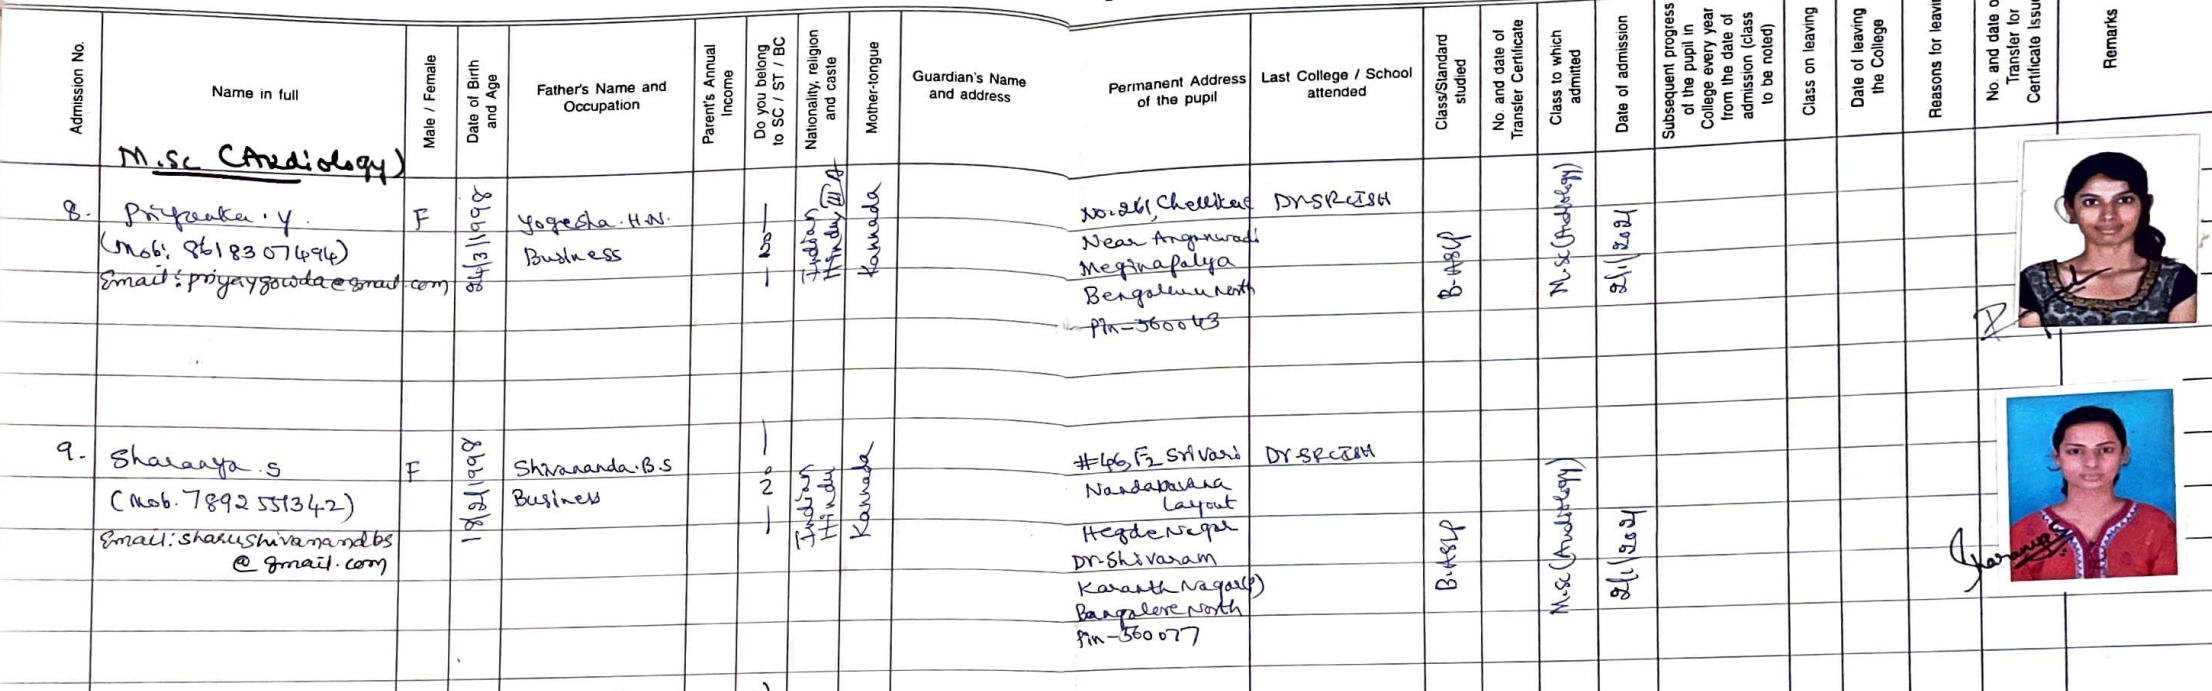 Admission No.
Name in full
Male / Female
Date of Birth
and Age
Father's Name and
Occupation
Parent's Annual
Income
Do you belong
to SC / ST / BC
Nationality, religion
and caste
Mother-tongue
Guardian's Name
and address
Permanent Address
of the pupil
Last College / School
attended
Class/Standard
studied
No. and date of
Transfer Certificate
Class to which
admitted
Date of admission
Subsequent progress
of the pupil in
College every year
from the date of
admission (class
to be noted)
Class on leaving
Date of leaving
the College
Reasons for
No. and date
Transfer for
Certificate
Remarks
M.Sc (Audiology)
8.
Priyanka. Y.
(Mob: 8618307494)
Email: priyaygowda@gmail.com
F
24/3/1998
Yogesha. H.N.
Business
No
Indian
Hindu III A
Kannada
No. 261, 
Near Anganwadi
Meginapalya
Bengaluru North
Pin-560043
DrSRCISH
B.ASLP
M.Sc (Audiology)
2/1/2021
9.
Sharanya. S
(Mob. 7892551342)
Email: sharushivanandbs
@ gmail.com
F
18/2/1998
Shivananda. B.S
Business
No
Indian
Hindu
Kannada
#46, F2 Srivari
Layout
Hegde Nagar
Dr. Shivaram
Karanth Nagar(P)
Bangalore North
Pin-560077
Dr SRCISH
B.ASLP
M.Sc (Audiology)
2/1/2021
Sharanya